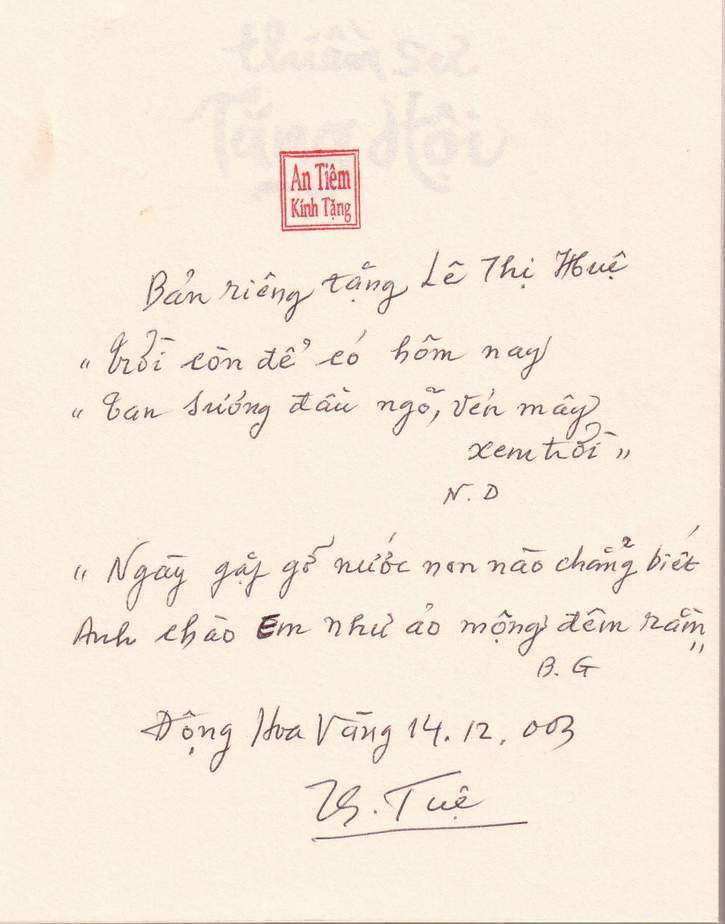 thiền sư
Tăng Hội
An Tiêm
Kính Tặng
Bản riêng tặng Lê Thị Huệ
"Trời còn để có hôm nay
"Tan sương đầu ngõ, vén mây
xem trời"
N. D
"Ngày gặp gỡ nước non nào chẳng biết
Anh chào Em như ảo mộng đêm rằm"
B. G
Động Hoa Vàng 14. 12. 003
Th. Tuệ